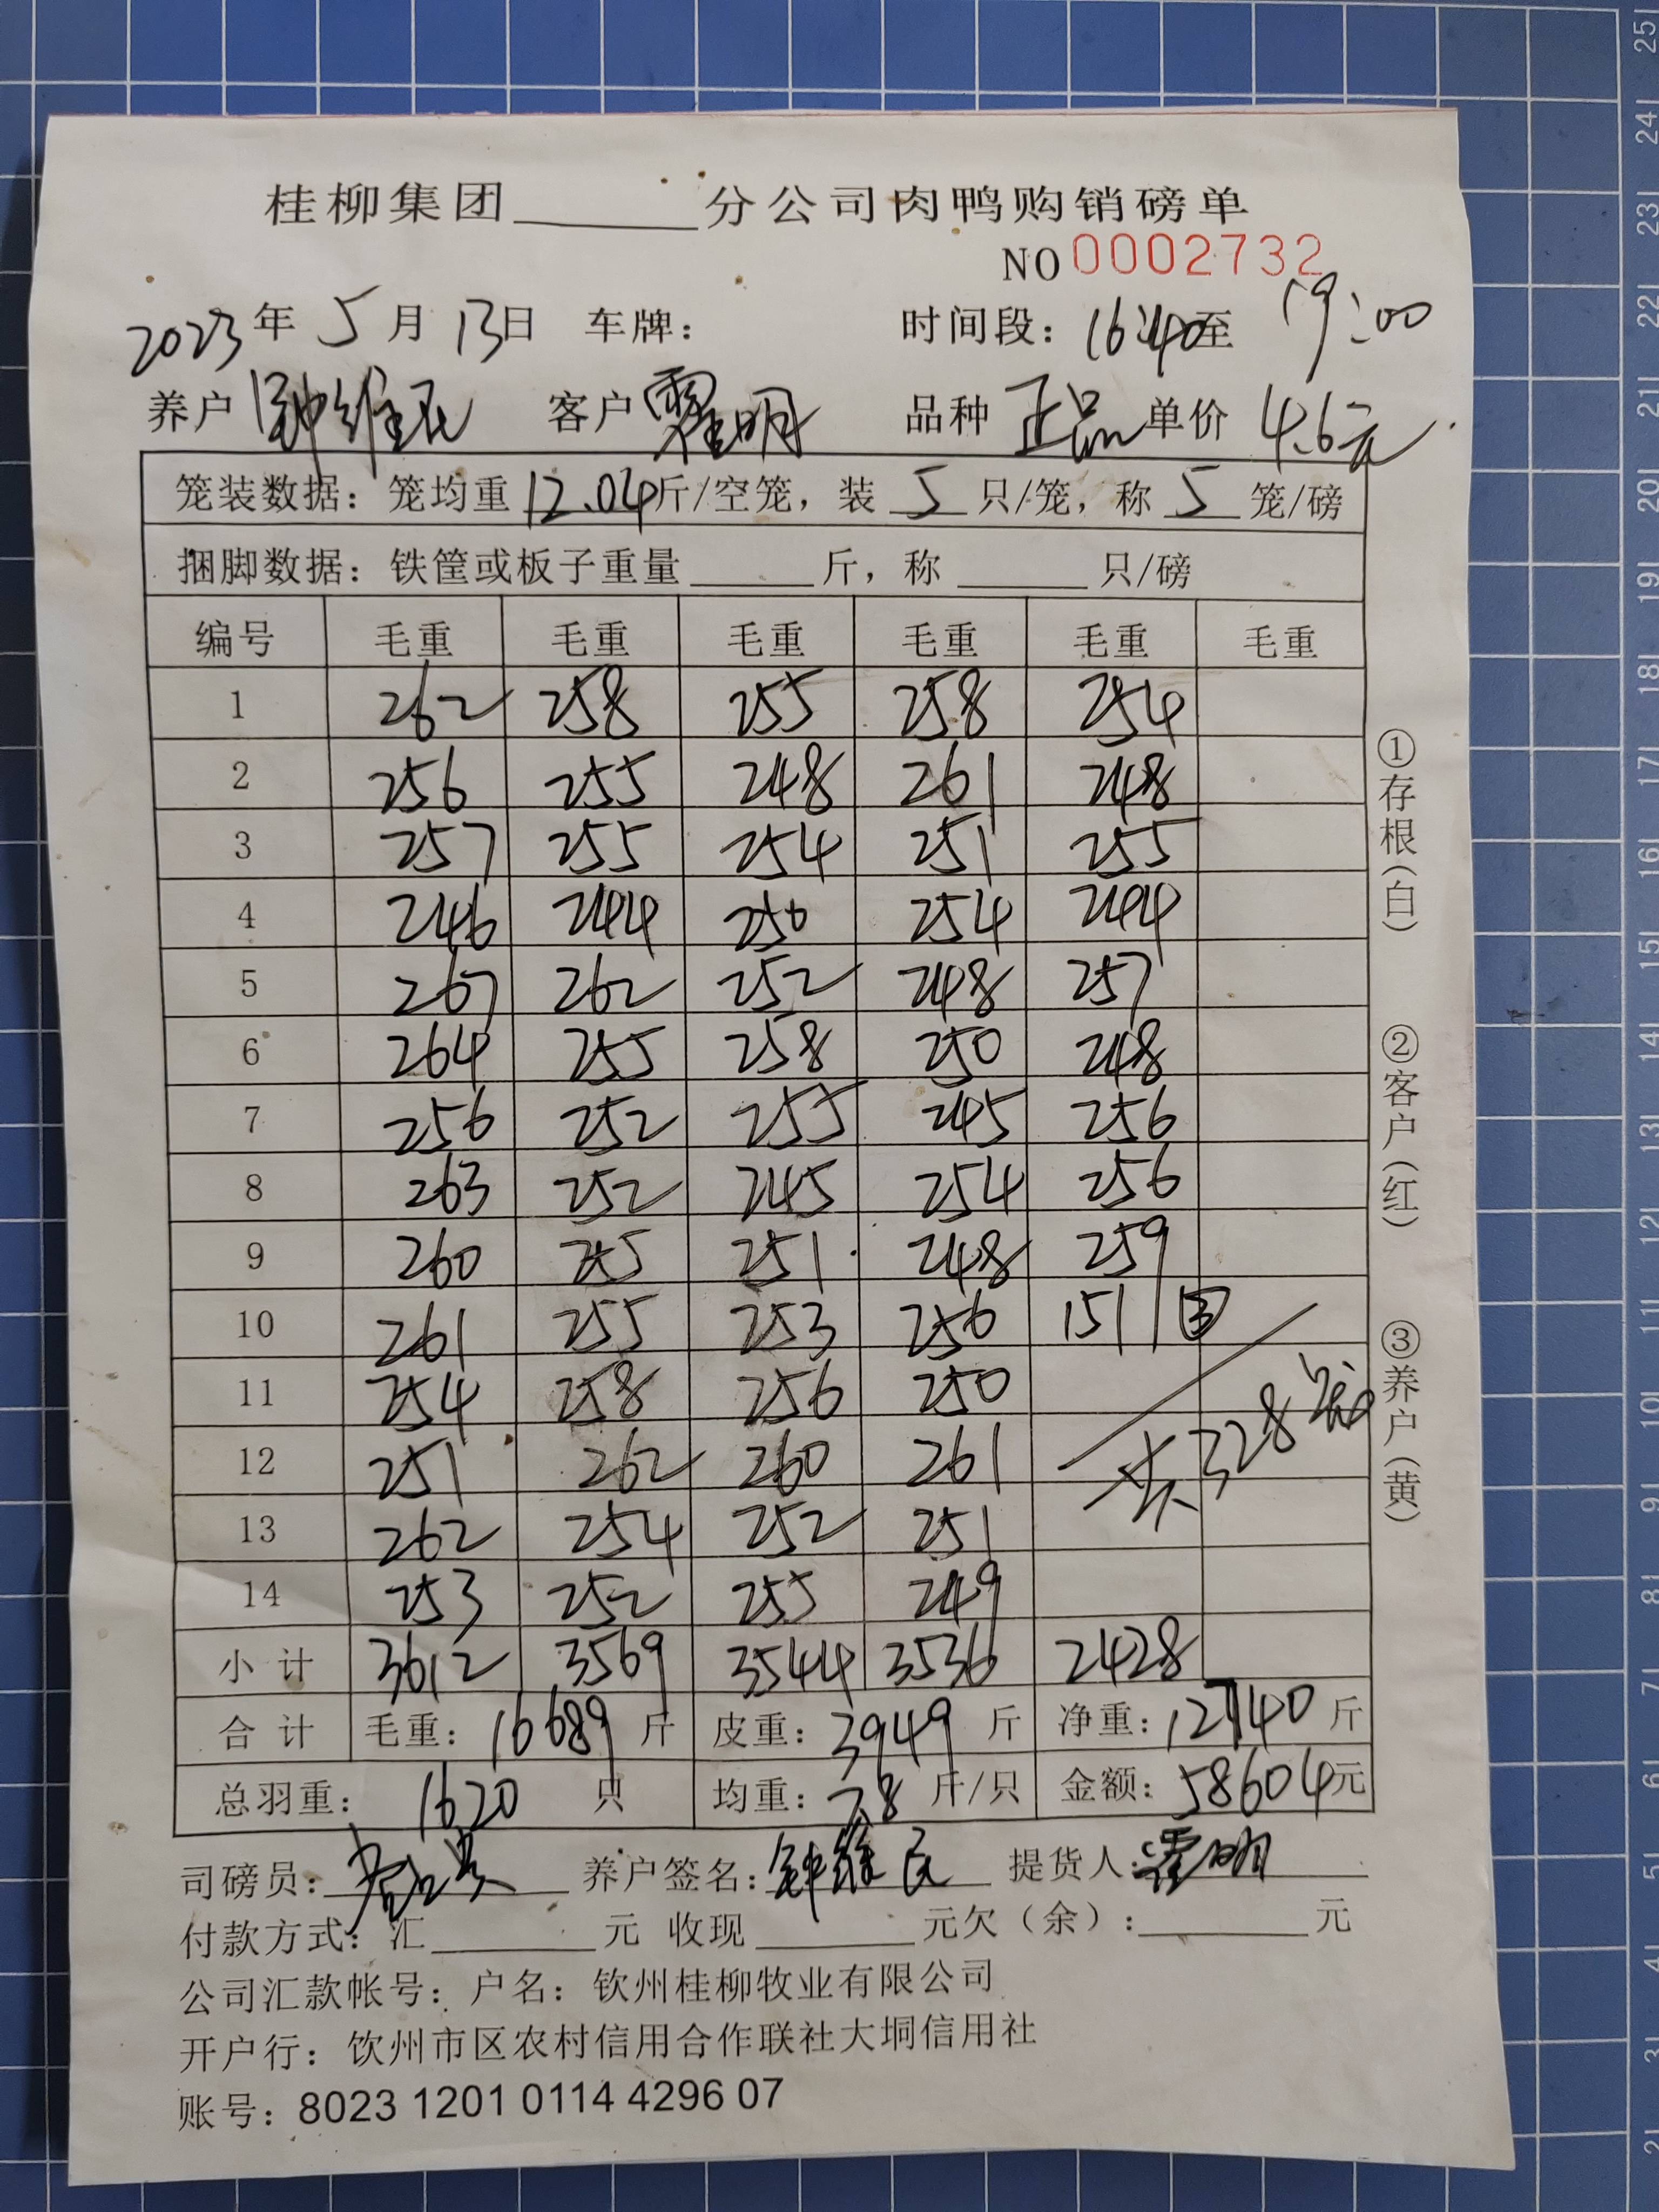 桂柳集团______分公司肉鸭购销磅单
NO 0002732
2023年 5月 13日 车牌： 时间段：16:40至 19:00
养户 钟维民 客户 霍明 品种 正品 单价 4.6元
笼装数据：笼均重12.04斤/空笼，装 5 只/笼，称 5 笼/磅
捆脚数据：铁筐或板子重量______斤，称______只/磅
编号 毛重 毛重 毛重 毛重 毛重 毛重
1 262 258 255 258 254
2 256 255 248 261 248
3 257 255 254 251 255
4 246 244 250 254 244
5 267 262 252 248 257
6 264 255 258 250 248
7 256 252 255 245 256
8 263 252 245 254 256
9 260 255 251 248 259
10 261 255 253 256 151 ③
11 254 258 256 250
12 251 262 260 261
共328笼
13 262 254 252 251
14 253 252 255 249
小计 3612 3569 3544 3536 2428
合计 毛重：16689斤 皮重：3949斤 净重：12740斤
总羽重：1620 只 均重：7.8 斤/只 金额：58604元
司磅员： 养户签名：钟维民 提货人：霍明
付款方式：汇______元 收现______元欠（余）：______元
公司汇款帐号：户名：钦州桂柳牧业有限公司
开户行：钦州市区农村信用合作联社大垌信用社
账号：8023 1201 0114 4296 07
①存根（白） ②客户（红） ③养户（黄）